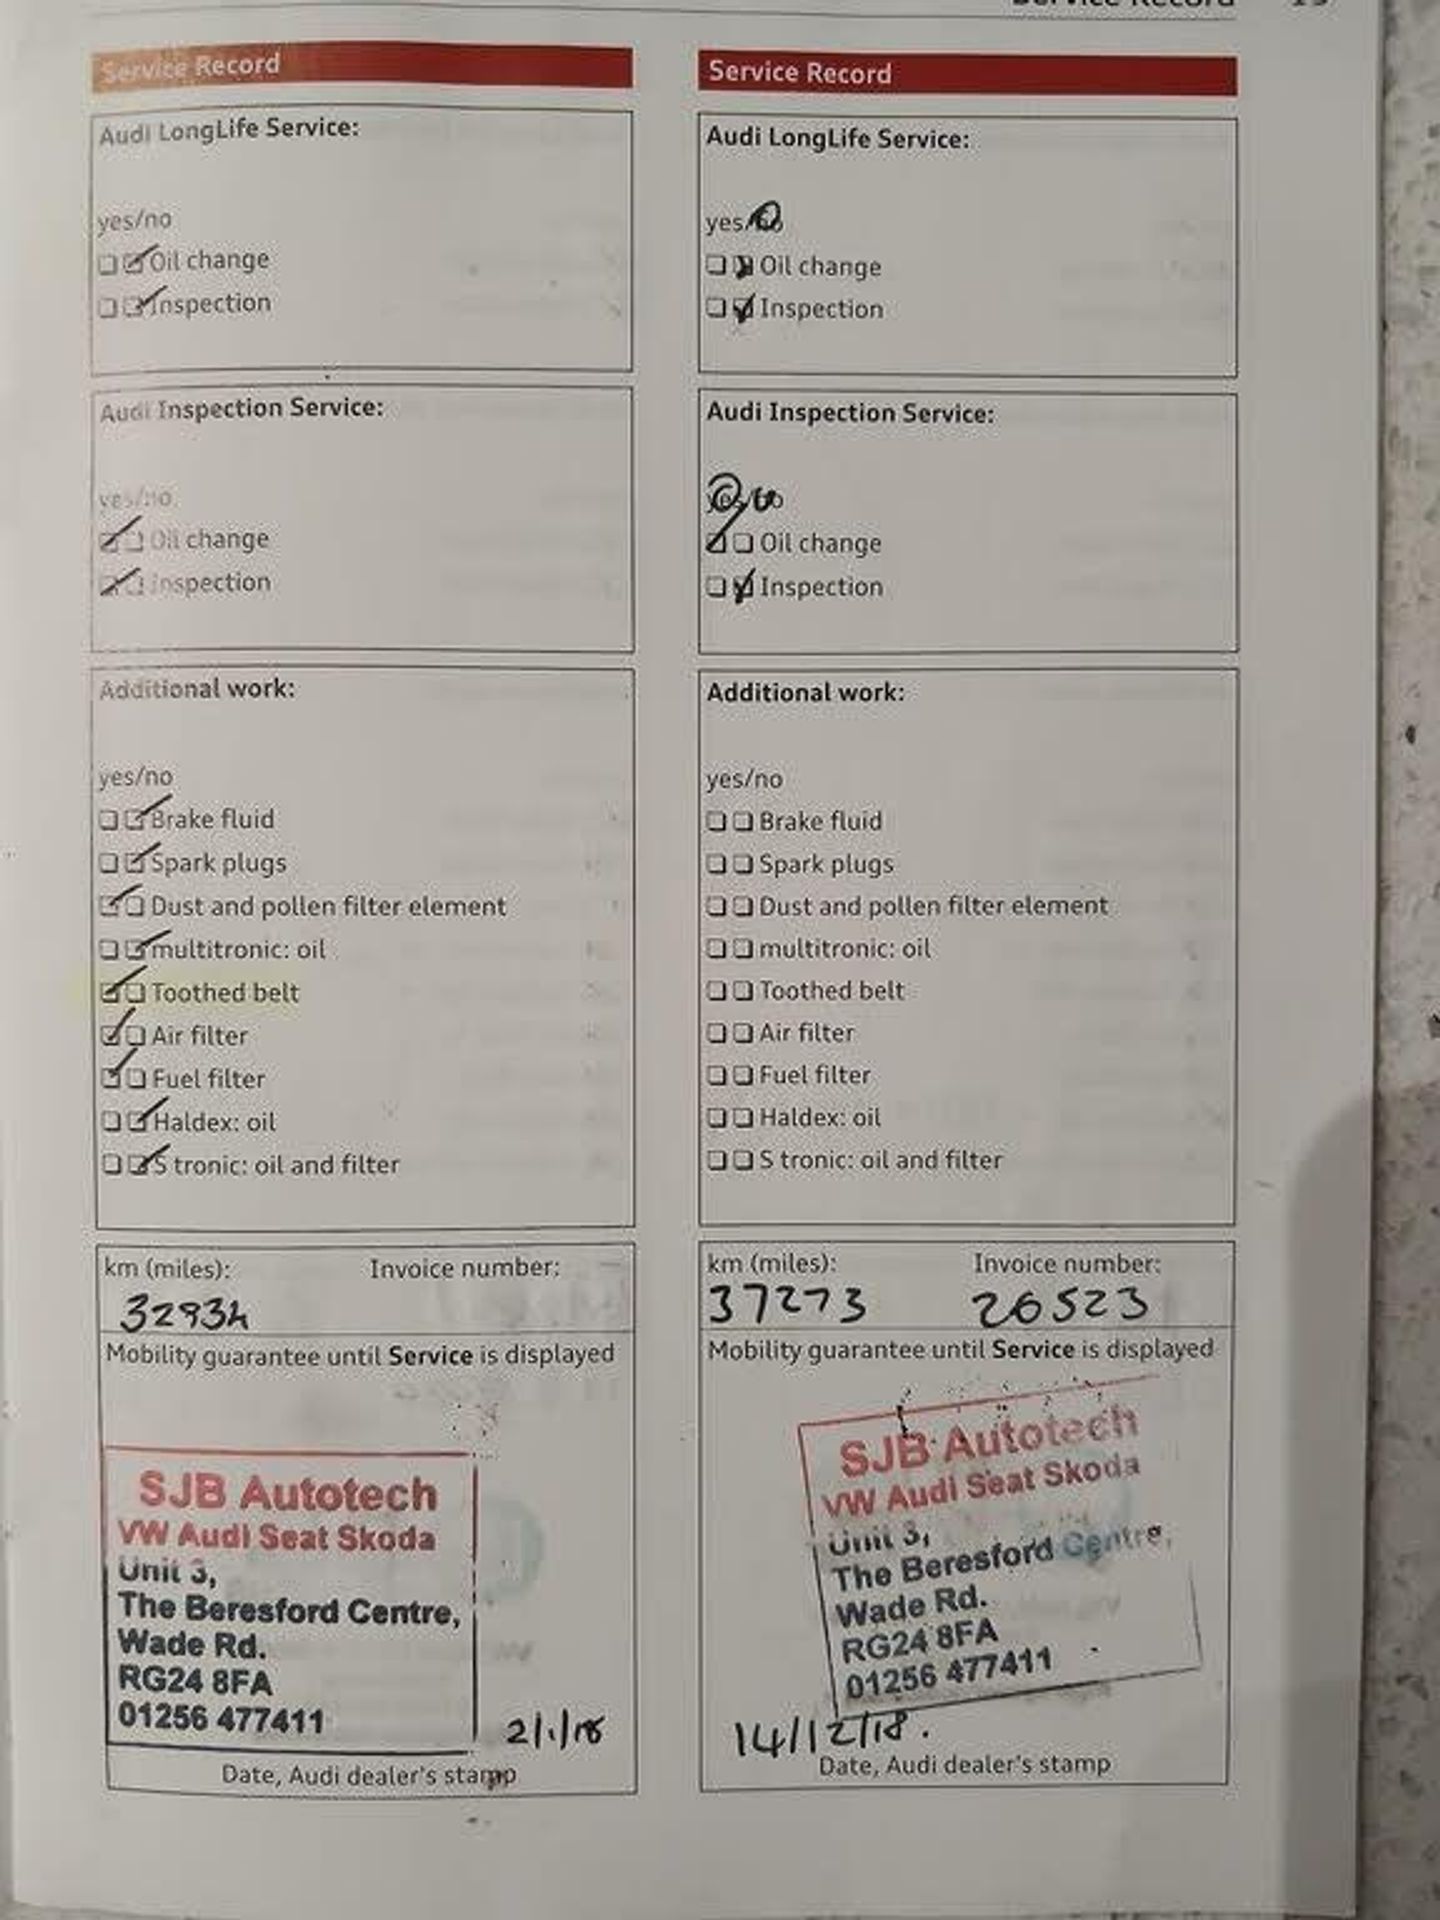 Service Record
Service Record
Audi LongLife Service:
yes/no
Oil change
Inspection
Audi Inspection Service:
yes/no
Oil change
Inspection
Additional work:
yes/no
Brake fluid
Spark plugs
Dust and pollen filter element
multitronic: oil
Toothed belt
Air filter
Fuel filter
Haldex: oil
S tronic: oil and filter
km (miles): Invoice number:
32934
Mobility guarantee until Service is displayed
SJB Autotech
VW Audi Seat Skoda
Unit 3,
The Beresford Centre,
Wade Rd.
RG24 8FA
01256 477411
2/1/18
Date, Audi dealer's stamp
Service Record
Audi LongLife Service:
yes/no
Oil change
Inspection
Audi Inspection Service:
yes/no
Oil change
Inspection
Additional work:
yes/no
Brake fluid
Spark plugs
Dust and pollen filter element
multitronic: oil
Toothed belt
Air filter
Fuel filter
Haldex: oil
S tronic: oil and filter
km (miles): Invoice number:
37273 26523
Mobility guarantee until Service is displayed
SJB Autotech
VW Audi Seat Skoda
Unit 3,
The Beresford Centre,
Wade Rd.
RG24 8FA
01256 477411
14/12/18.
Date, Audi dealer's stamp